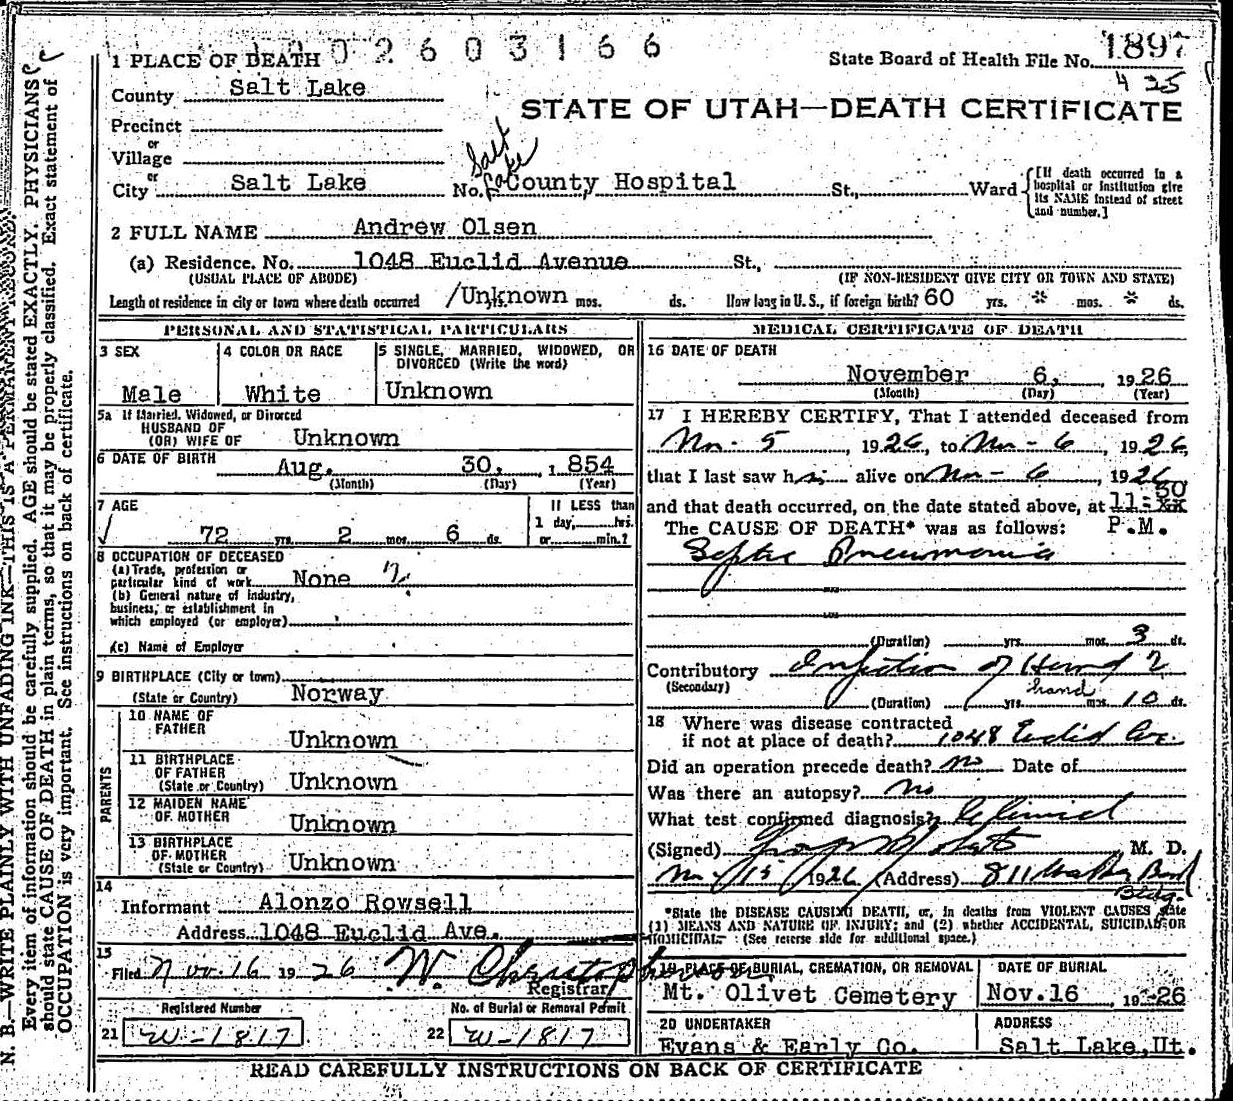 1 PLACE OF DEATH
1 9 0 2 6 0 3 1 6 6
State Board of Health File No. 1897
435
County Salt Lake
STATE OF UTAH—DEATH CERTIFICATE
Precinct
or
Village
or
City Salt Lake No. Salt Lake County Hospital St., Ward
[If death occurred in a hospital or institution give its NAME instead of street and number.]
2 FULL NAME Andrew Olsen
(a) Residence. No. 1048 Euclid Avenue St.,
(USUAL PLACE OF ABODE) (IF NON-RESIDENT GIVE CITY OR TOWN AND STATE)
Length of residence in city or town where death occurred Unknown yrs. mos. ds. How long in U. S., if foreign birth? 60 yrs. * mos. * ds.
PERSONAL AND STATISTICAL PARTICULARS
3 SEX
Male
4 COLOR OR RACE
White
5 SINGLE, MARRIED, WIDOWED, OR DIVORCED (Write the word)
Unknown
5a If Married, Widowed, or Divorced
HUSBAND OF
(OR) WIFE OF Unknown
6 DATE OF BIRTH
Aug. 30, 1854
(Month) (Day) (Year)
7 AGE
72 yrs. 2 mos. 6 ds.
If LESS than
1 day, hrs.
or min.?
8 OCCUPATION OF DECEASED
(a) Trade, profession or
particular kind of work None
(b) General nature of industry,
business, or establishment in
which employed (or employer)
(c) Name of Employer
9 BIRTHPLACE (City or town)
(State or Country) Norway
PARENTS
10 NAME OF
FATHER Unknown
11 BIRTHPLACE
OF FATHER
(State or Country) Unknown
12 MAIDEN NAME
OF MOTHER Unknown
13 BIRTHPLACE
OF MOTHER
(State or Country) Unknown
14
Informant Alonzo Rowsell
Address 1048 Euclid Ave.
15
Filed Nov. 16 1926 W. Christopherson
Registrar
Registered Number
21 W-1817
No. of Burial or Removal Permit
22 W-1817
MEDICAL CERTIFICATE OF DEATH
16 DATE OF DEATH
November 6, 1926
(Month) (Day) (Year)
17 I HEREBY CERTIFY, That I attended deceased from
Nov - 5, 1926, to Nov - 6, 1926,
that I last saw him alive on Nov - 6, 1926
and that death occurred, on the date stated above, at 11:50
P.M.
The CAUSE OF DEATH* was as follows:
Septic Pneumonia
(Duration) yrs. mos. 3 ds.
Contributory Infection of Hand ?
(Secondary) hand
(Duration) yrs. mos. 10 ds.
18 Where was disease contracted
if not at place of death? 1048 Euclid Ave.
Did an operation precede death? no Date of
Was there an autopsy? no
What test confirmed diagnosis? Clinical
(Signed) M. D.
Nov 15 1926 (Address) 811 Walker Bank
Bldg.
*State the DISEASE CAUSING DEATH, or, in deaths from VIOLENT CAUSES state
(1) MEANS AND NATURE OF INJURY; and (2) whether ACCIDENTAL, SUICIDAL OR
HOMICIDAL. (See reverse side for additional space.)
19 PLACE OF BURIAL, CREMATION, OR REMOVAL
Mt. Olivet Cemetery
DATE OF BURIAL
Nov. 16, 1926
20 UNDERTAKER
Evans & Early Co.
ADDRESS
Salt Lake, Ut.
READ CAREFULLY INSTRUCTIONS ON BACK OF CERTIFICATE
N. B.—WRITE PLAINLY WITH UNFADING INK—THIS IS A PERMANENT RECORD.
Every item of information should be carefully supplied. AGE should be stated EXACTLY. PHYSICIANS
should state CAUSE OF DEATH in plain terms, so that it may be properly classified. Exact statement of
OCCUPATION is very important. See instructions on back of certificate.